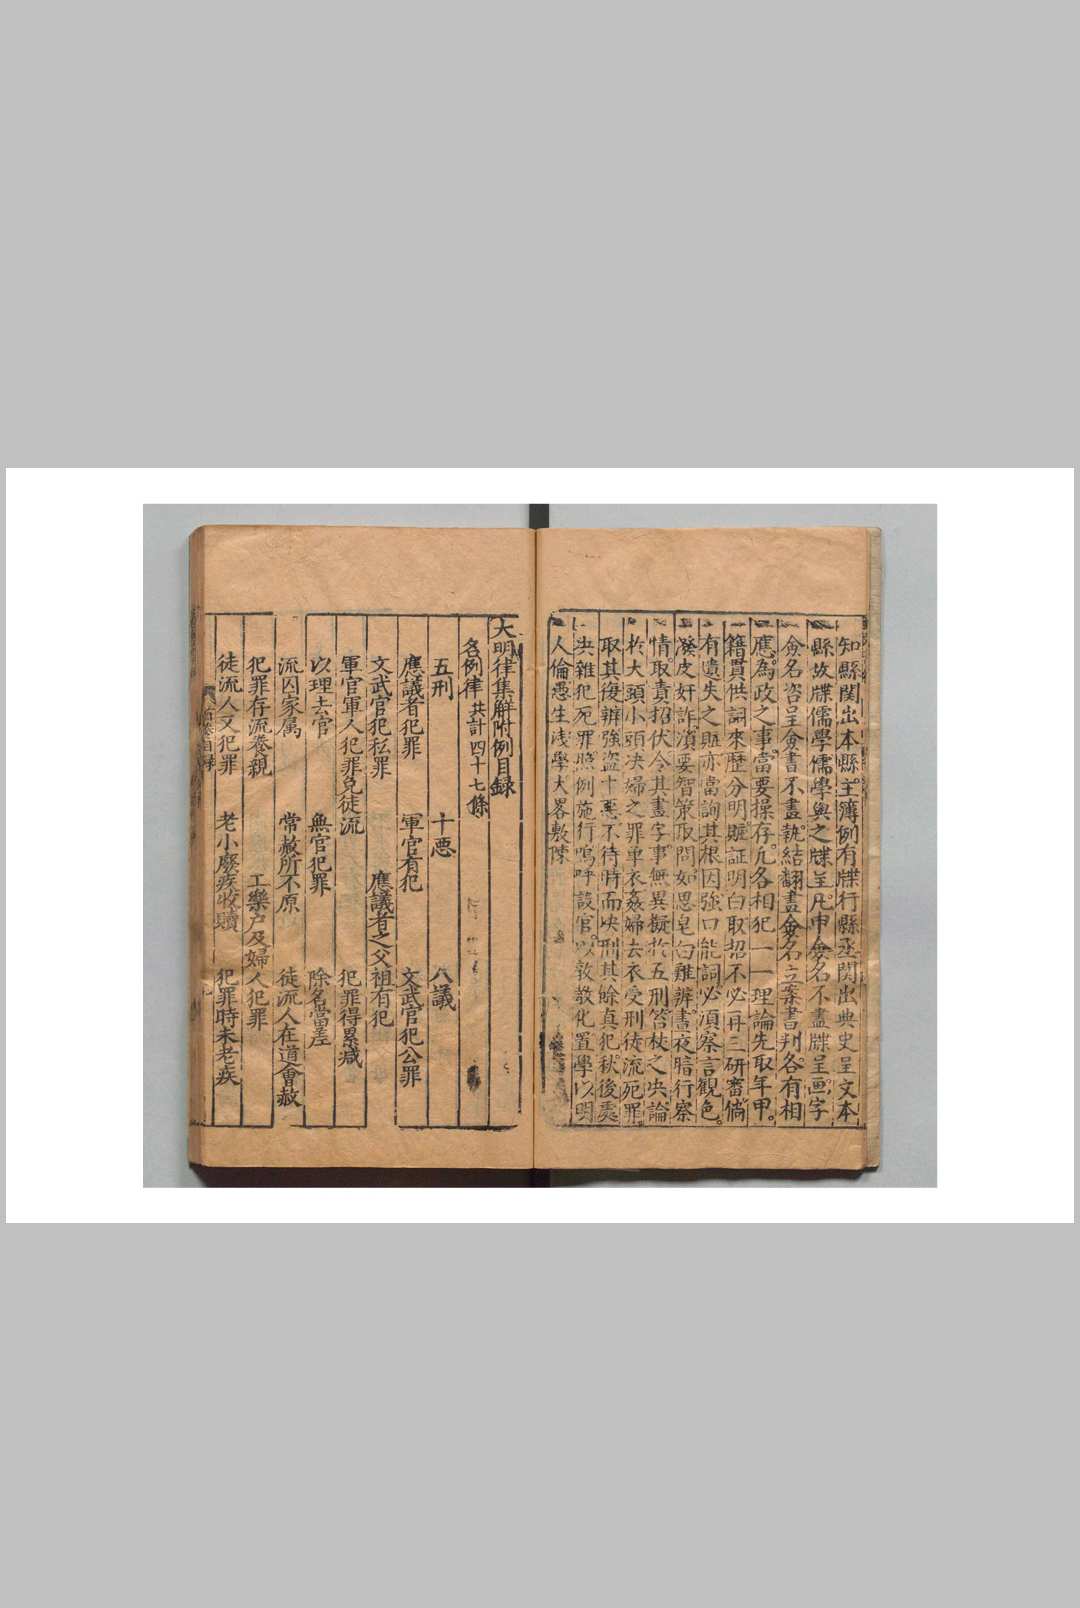 知縣関出本縣主簿例有牒行縣丞関出典史呈文本
縣故牒儒學儒學與之牒呈凡申僉名不盡牒呈画字
僉名咨呈僉書不盡執結翻畫僉名立案書判各有相
應為政之事當要操存凢各相犯一一理論先取年甲
籍貫供詞來歷分明賍証明白取招不必再三研審倘
有遺失之賍亦當詢其根因強口能詞必湏察言観色
潑皮奸詐湏要智策取問如思皂白難辨晝夜暗行察
情取責招伏令其畫字事無異擬扵五刑笞杖之决論
扵大頭小頭决婦之罪单衣姦婦去衣受刑徒流死罪
取其復辨強盗十惡不待時而决刑其餘真犯秋後處
决雜犯死罪照例施行嗚呼設官以敦敎化置學以明
人倫愚生淺學大畧敷陳
大明律集解附例目録
名例律 共計四十七條
五刑 十惡 八議
應議者犯罪 軍官有犯 文武官犯公罪
文武官犯私罪 應議者之父祖有犯
軍官軍人犯罪免徒流 犯罪得累减
以理去官 無官犯罪 除名當差
流囚家属 常赦所不原 徒流人在道會赦
犯罪存流養親 工樂户及婦人犯罪
徒流人又犯罪 老小廢疾收贖 犯罪時未老疾